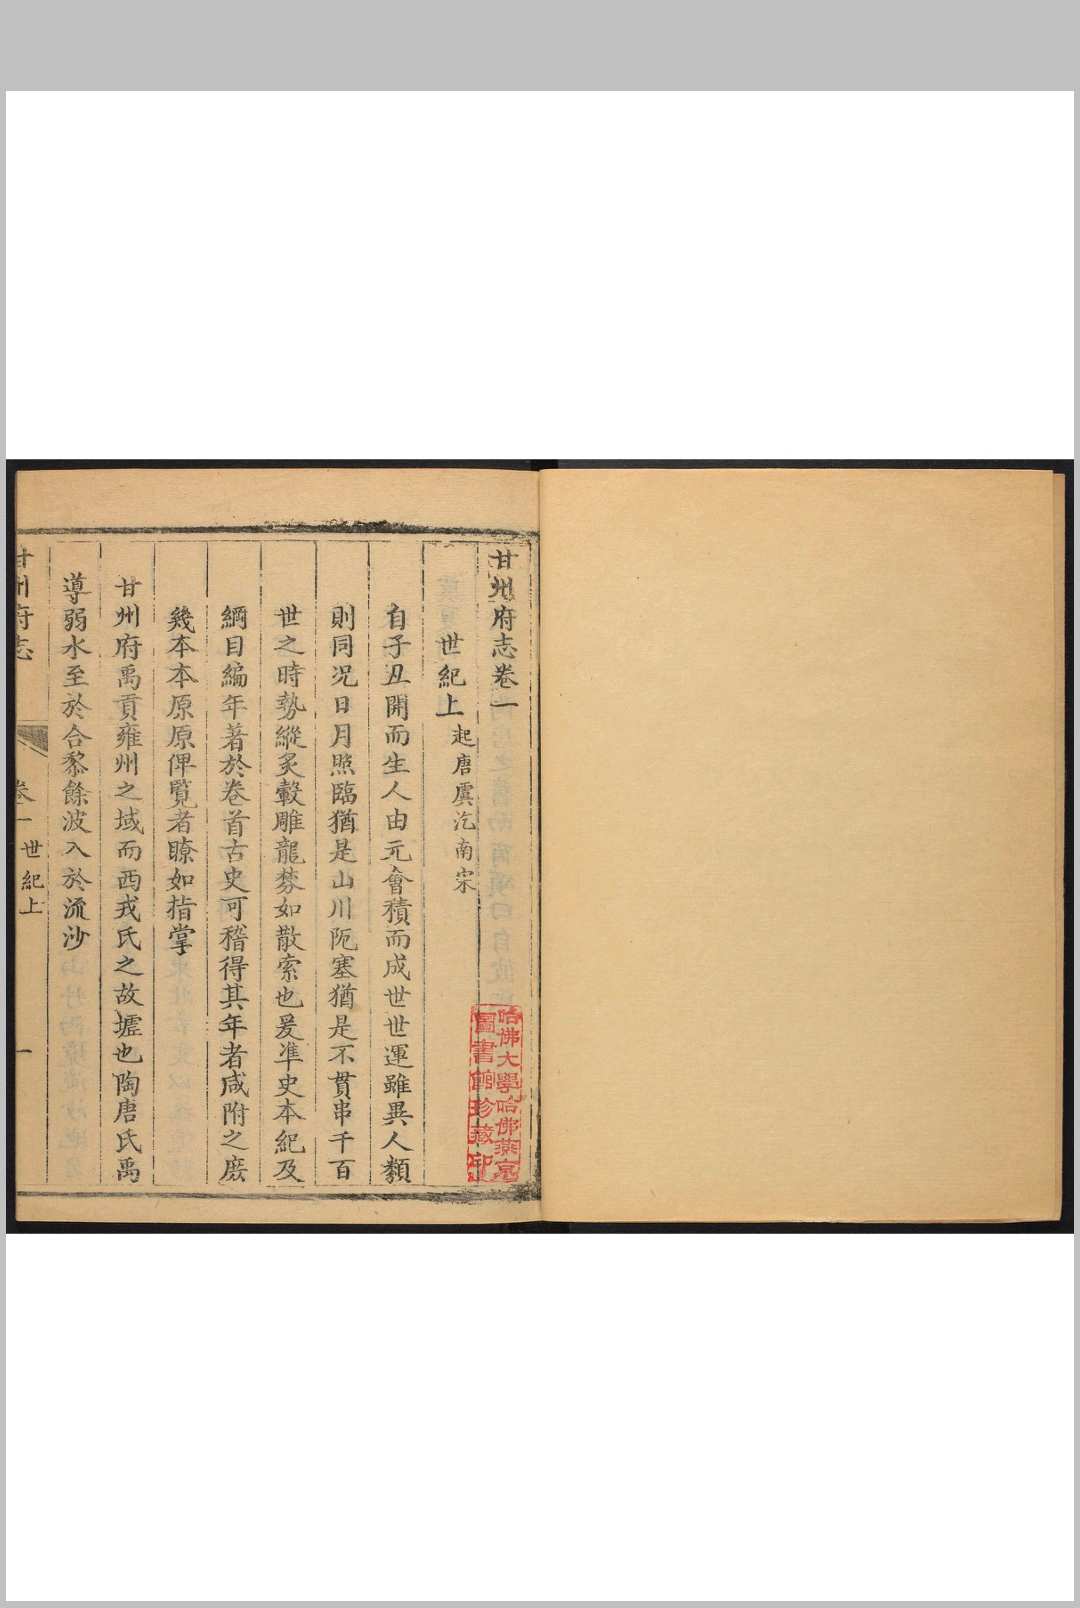 甘州府志卷一
世紀上 起唐虞汔南宋
自子丑開而生人由元會積而成世世運雖異人類
則同況日月照臨猶是山川阨塞猶是不貫串千百
世之時勢縱炙轂雕龍棼如散索也爰準史本紀及
綱目編年著於卷首古史可稽得其年者咸附之庶
幾本本原原俾覽者瞭如指掌
甘州府禹貢雍州之域而西戎氏之故墟也陶唐氏禹
導弱水至於合黎餘波入於流沙
甘州府志 卷一 世紀上 一
哈佛大學哈佛燕京
圖書館珍藏印